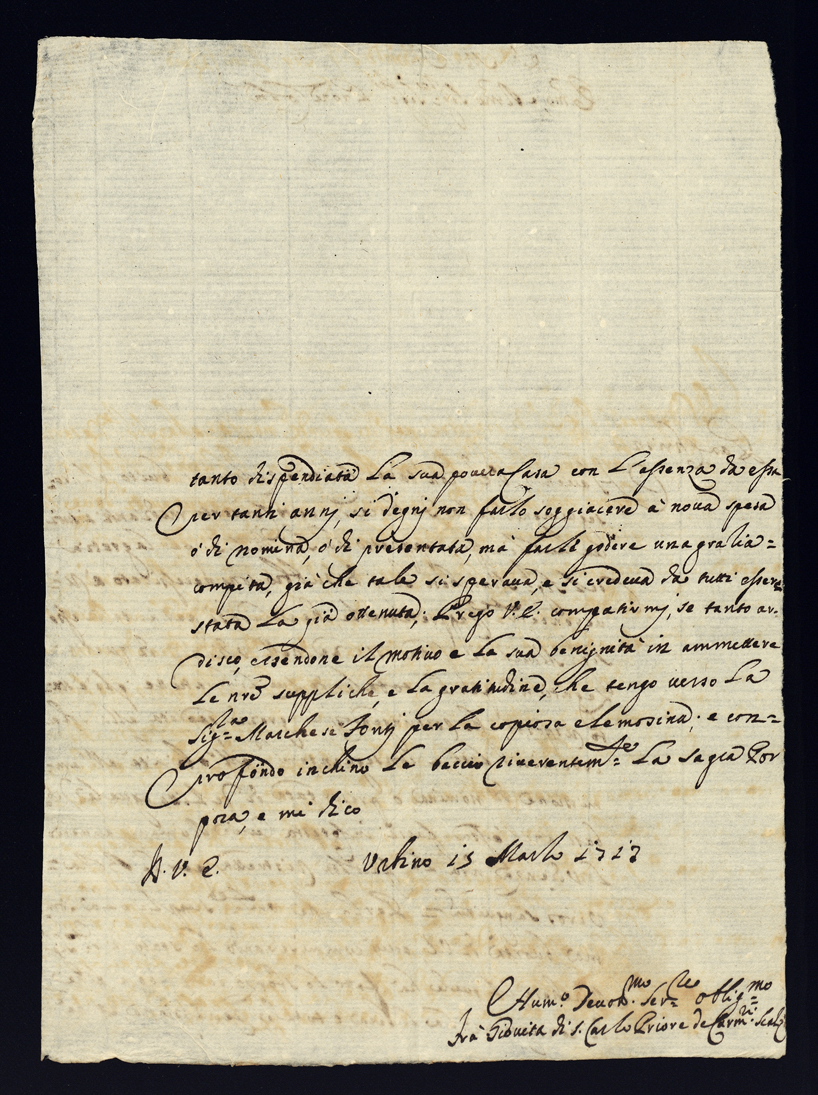 tanto dispendiata la sua povera Casa con l'assenza da essa
per tanti annj, si degnj non farlo soggiacere à nova spesa
ò di nomina, ò di presentata, mà farli godere una gratia=
compita, già che tale si sperava, e si credeva da tutti essere
stata la già ottenuta; Prego V. E. compatirmj, se tanto ar-
disco, essendone il motivo e la sua benignità in ammettere
le nre suppliche, e la gratitudine, che tengo verso la
Sig.ra Marchese per la copiosa elemosina; e con=
profondo inchino le baccio riverentem.te la sagra Por
pora, e mi dico
D. V. E. Urbino 15 Marzo 1717
Hum.o Devot.mo Ser.re oblig.mo
frà Giovita di S. Carlo Priore de Carm.ni Scalzi